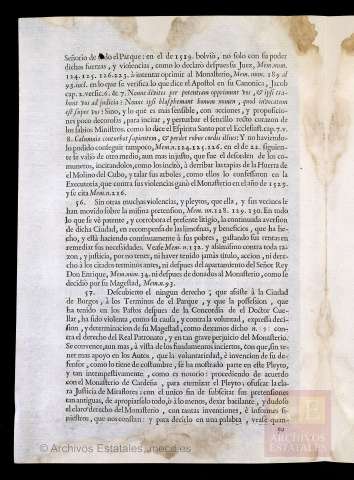 Señorio de todo el Parque: en el de 1529. bolvio, no solo con su poder
dichas fuerzas, y violencias, como lo declaro despues su Juez, Mem. num.
124. 125. 126. 223. à intentar oprimir al Monasterio, Mem. num. 189. al
93. incl. en lo que se verifica lo que dice el Apostol en su Canonica, Jacob
cap. 2. versic. 6. & 7. Nonne divites per potentiam opprimunt vos, & ipsi tra-
hunt vos ad judicia: Nonne ipsi blasphemant bonum nomen, quod invocatum
est super vos: Sino, y lo que es mas sensible, con acciones, y proposicio-
nes poco decorosas, para incitar, y perturbar el sencillo recto corazon de
los sabios Ministros, como lo dice el Espiritu Santo por el Ecclesiast. cap. 7. v.
8. Calumnia conturbat sapientem, & perdet robur cordis illius: Y no haviendo-
lo podido conseguir tampoco, Mem. n. 124. 125. 126. en el de 22. siguien-
te se valiò de otro medio, aun mas injusto, que fue el de
muneros, incitandolos, como los incitò, à derribar las tapias de la Huerta de
el Molino del Cubo, y talar sus arboles, como ellos lo confessaron en la
Executoria, que contra sus violencias ganò el Monasterio en el año de 1525.
y se cita Mem. n. 216.
56. Sin otras muchas violencias, y pleytos, que ella, y sus vecinos le
han movido sobre la misma pretension, Mem. nn. 128. 129. 130. En todo
lo que se vè patente, y corrobora el presente litigio, la continuada aversion
de dicha Ciudad, en recompensa de las limosnas, y beneficios, que ha he-
cho, y està haciendo continuamente à sus pobres, gastando sus rentas en
remediar sus necesidades. Vease Mem. n. 132. y asimismo contra toda ra-
zon, y justicia, por no tener, ni haver tenido jamàs titulo, accion, ni dere-
cho à los citados terminos antes, ni despues del apartamiento del Señor Rey
Don Enrique, Mem. num. 34. ni despues de donados al Monasterio, como se
decidiò por su Magestad, Mem. n. 93.
57. Descubierto el ningun derecho, que assiste à la Ciudad
de Burgos, à los Terminos de el Parque, y que la possession, que
ha tenido en los Pastos despues de la Concordia de el Doctor Cue-
llar, ha sido violenta, como sin causa, y contra la voluntad, expressa deci-
sion, y determinacion de su Magestad, como dexamos dicho n. con-
tra el derecho del Real Patronato, y en tan grave perjuicio del Monasterio.
Se convence, aun mas, à vista de los fundamentos inciertos, con que, sin te-
ner mas apoyo en los Autos, que la voluntariedad, è invencion de su de-
fensor, como lo tiene de costumbre, se ha mostrado parte en este Pleyto,
y tan intempestivamente, como es notorio: procediendo de acuerdo
con el Monasterio de Cardeña, para eternizar el Pleyto, ofuscar la cla-
ra Justicia de Miraflores: con el unico fin de subscitar sus pretensiones
tan antiguas, de apropiarselo todo, ò à lo menos, dexar bacilante, y dudoso
el claro derecho del Monasterio, con tantas invenciones, è informes si-
niestros, que nos constan: y para decirlo en una palabra, vease quan-
© Archivos Estatales, mecd.es
ARCHIVOS
ESTATALES